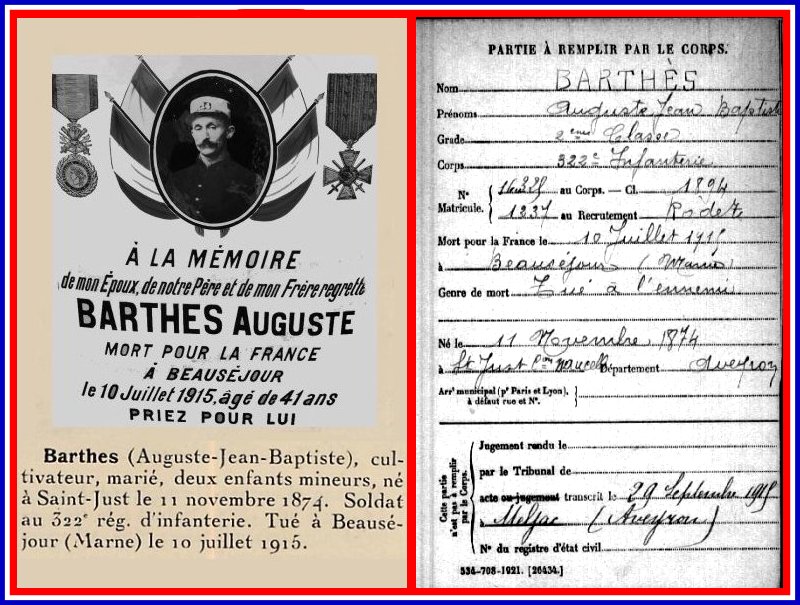 À LA MÉMOIRE
de mon Époux, de notre Père et de mon Frère regretté
BARTHES AUGUSTE
MORT POUR LA FRANCE
À BEAUSÉJOUR
le 10 Juillet 1915, âgé de 41 ans
PRIEZ POUR LUI
Barthes (Auguste-Jean-Baptiste), cul-
tivateur, marié, deux enfants mineurs, né
à Saint-Just le 11 novembre 1874. Soldat
au 322e rég. d'infanterie. Tué à Beausé-
jour (Marne) le 10 juillet 1915.
PARTIE À REMPLIR PAR LE CORPS.
Nom BARTHÈS
Prénoms Auguste Jean Baptiste
Grade 2ème Classe
Corps 322e Infanterie
N° Matricule. au Corps. — Cl. 1894
1237 au Recrutement Rodez
Mort pour la France le 10 Juillet 1915
à Beauséjour (Marne)
Genre de mort Tué à l'ennemi
Né le 11 Novembre 1874
à St Just Département Aveyron
Arrt municipal (pr Paris et Lyon),
à défaut rue et N°.
Cette partie n'est pas à remplir par le Corps.
Jugement rendu le
par le Tribunal de
acte ou jugement transcrit le 29 Septembre 1915
à Meljac (Aveyron)
N° du registre d'état civil
534-708-1921. [26434.]